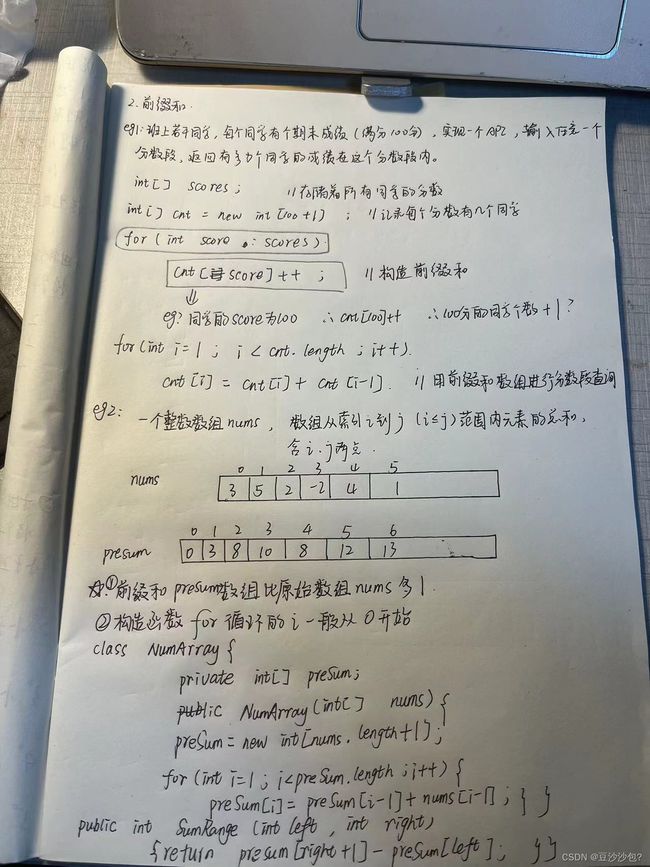 2.前缀和.
eg1:班上若干同学,每个同学有个期末成绩(满分100分),实现一个API,输入任意一个
分数段,返回有多少个同学的成绩在这个分数段内。
int[] scores; //存储着所有同学的分数
int[] cnt = new int[100+1] ; //记录每个分数有几个同学
for(int score : scores).
cnt[score]++ ; //构造前缀和
⇓
eg:同学的score为100 ∴cnt[100]++ ∴100分的同学个数+1?
for(int i=1; i < cnt.length ; i++).
cnt[i] = cnt[i]+ cnt[i-1]. //用前缀和数组进行分数段查询
eg2: 一个整数数组nums, 数组从索引i到j (i≤j)范围内元素的总和,
含i.j两点.
0 1 2 3 4 5
nums 3 5 2 -2 4 1
0 1 2 3 4 5 6
presum 0 3 8 10 8 12 13
☆:①前缀和presum数组比原始数组nums多1.
②构造函数for循环的i一般从0开始
class NumArray {
private int[] preSum;
public NumArray(int[] nums) {
preSum = new int[nums.length+1];
for(int i=1; i<preSum.length; i++) {
preSum[i] = preSum[i-1]+ nums[i-1]; } }
public int SumRange (int left, int right)
{return presum[right+1]-preSum[left]; }}
CSDN @豆沙沙包?